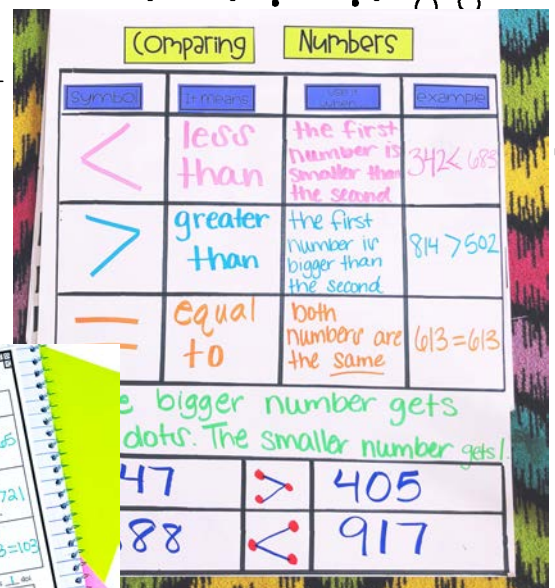 Comparing Numbers
symbol It means use it when... example
< less than the first number is smaller than the second 342<685
> greater than the first number is bigger than the second 814>502
= equal to both numbers are the same 613=613
bigger number gets
dots. The smaller number gets 1.
47 > 405
88 < 917
65
721
=103
dot